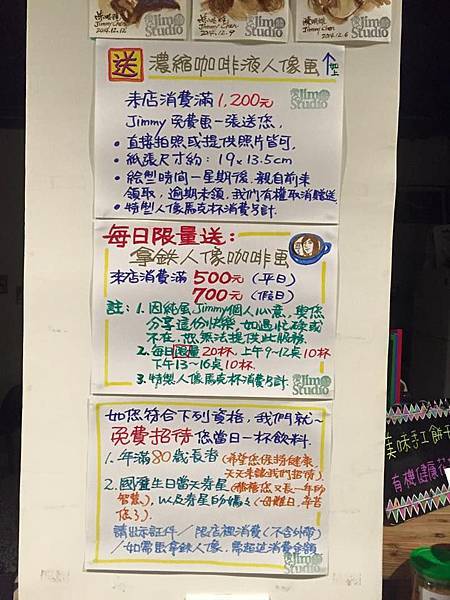 Jimmy Chen
2014.12.12
Jimmy Chen
2014.12.9
Jimmy Chen
2014.12.6
Jim Studio
送 濃縮咖啡液人像畫
來店消費滿1,200元
Jimmy免費畫一張送您,
•直接拍照或提供照片皆可.
•紙張尺寸約:19×13.5cm
•繪製時間一星期後,親自前來
領取,逾期未領,我們有權取消贈送
•特製人像馬克杯消費另計.
Jim Studio
每日限量送:
拿鉄人像咖啡畫
來店消費滿 500元(平日)
700元(假日)
註:1.因純屬Jimmy個人心意,與您
分享這份快樂,如遇忙碌或
不在,恕無法提供此服務.
2.每日限量20杯,上午9~12點10杯
下午13~16點10杯.
3.特製人像馬克杯消費另計.
Jim Studio
如您符合下列資格,我們就~
免費招待您當日一杯飲料.
1.年滿80歲長者(希望您保持健康,
天天來讓我們招待)
2.國曆生日當天壽星(
智慧),以及壽星的媽媽(母難日,辛苦
您了).
請出示証件/限店裡消費(不含外帶)
/如需畫拿鉄人像,需超過消費金額
Jim Studio
美味手工餅干
有機健康花